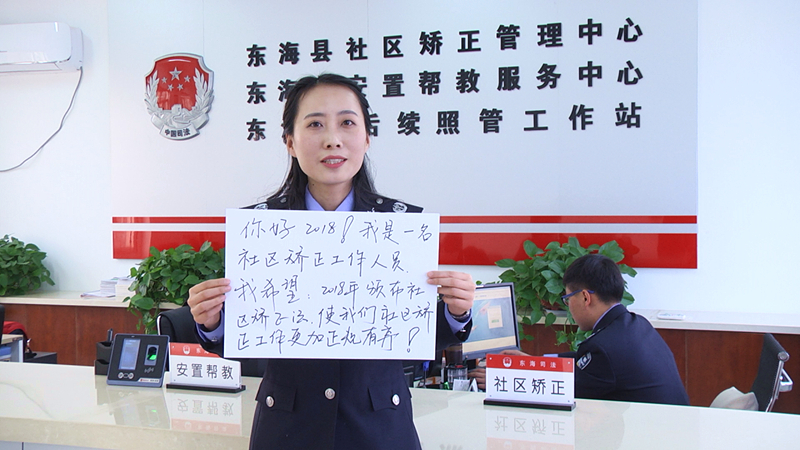 东海县社区矫正管理中心
东海 安置帮教服务中心
东 后续照管工作站
中国司法
你好2018！我是一名
社区矫正工作人员.
我希望：2018年颁布社
区矫正法、使我们社区矫
正工作更加正规有序！
安置帮教
东海司法
社区矫正